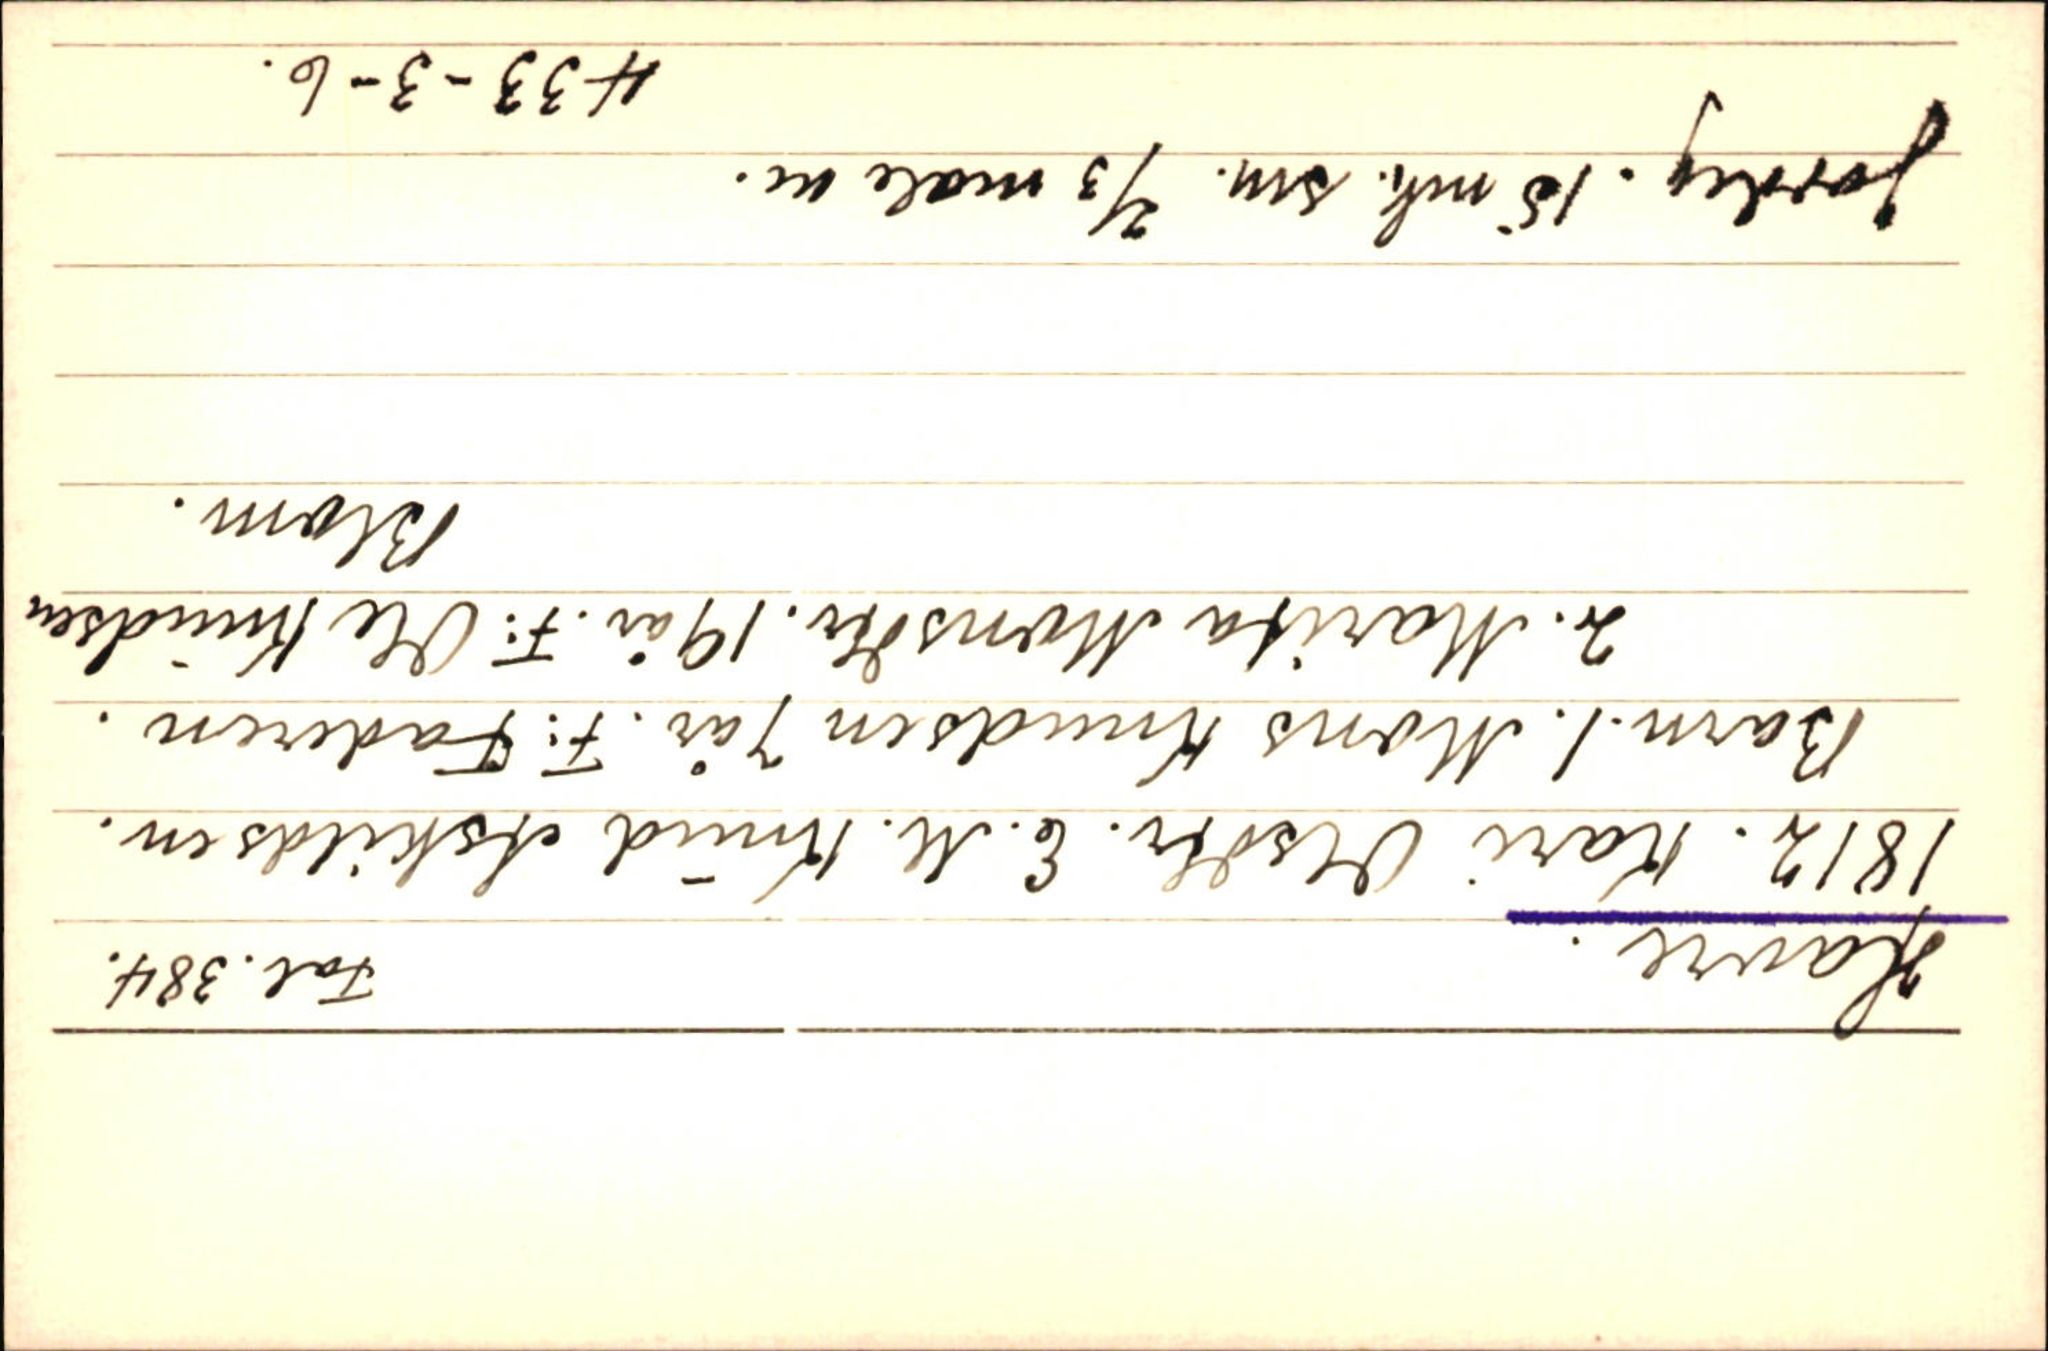 Havre. Fol. 384.
1812. Kari Olsdtr. E. M. Knud Askildsen.
Barn. 1. Mons Knudsen 7 år. F: Faderen.
2. Marita Monsdtr. 19 år. F: Ole Knudsen
Blom.
Jordeg. 15 mk. sm. 2/3 male m.
433-3-6.